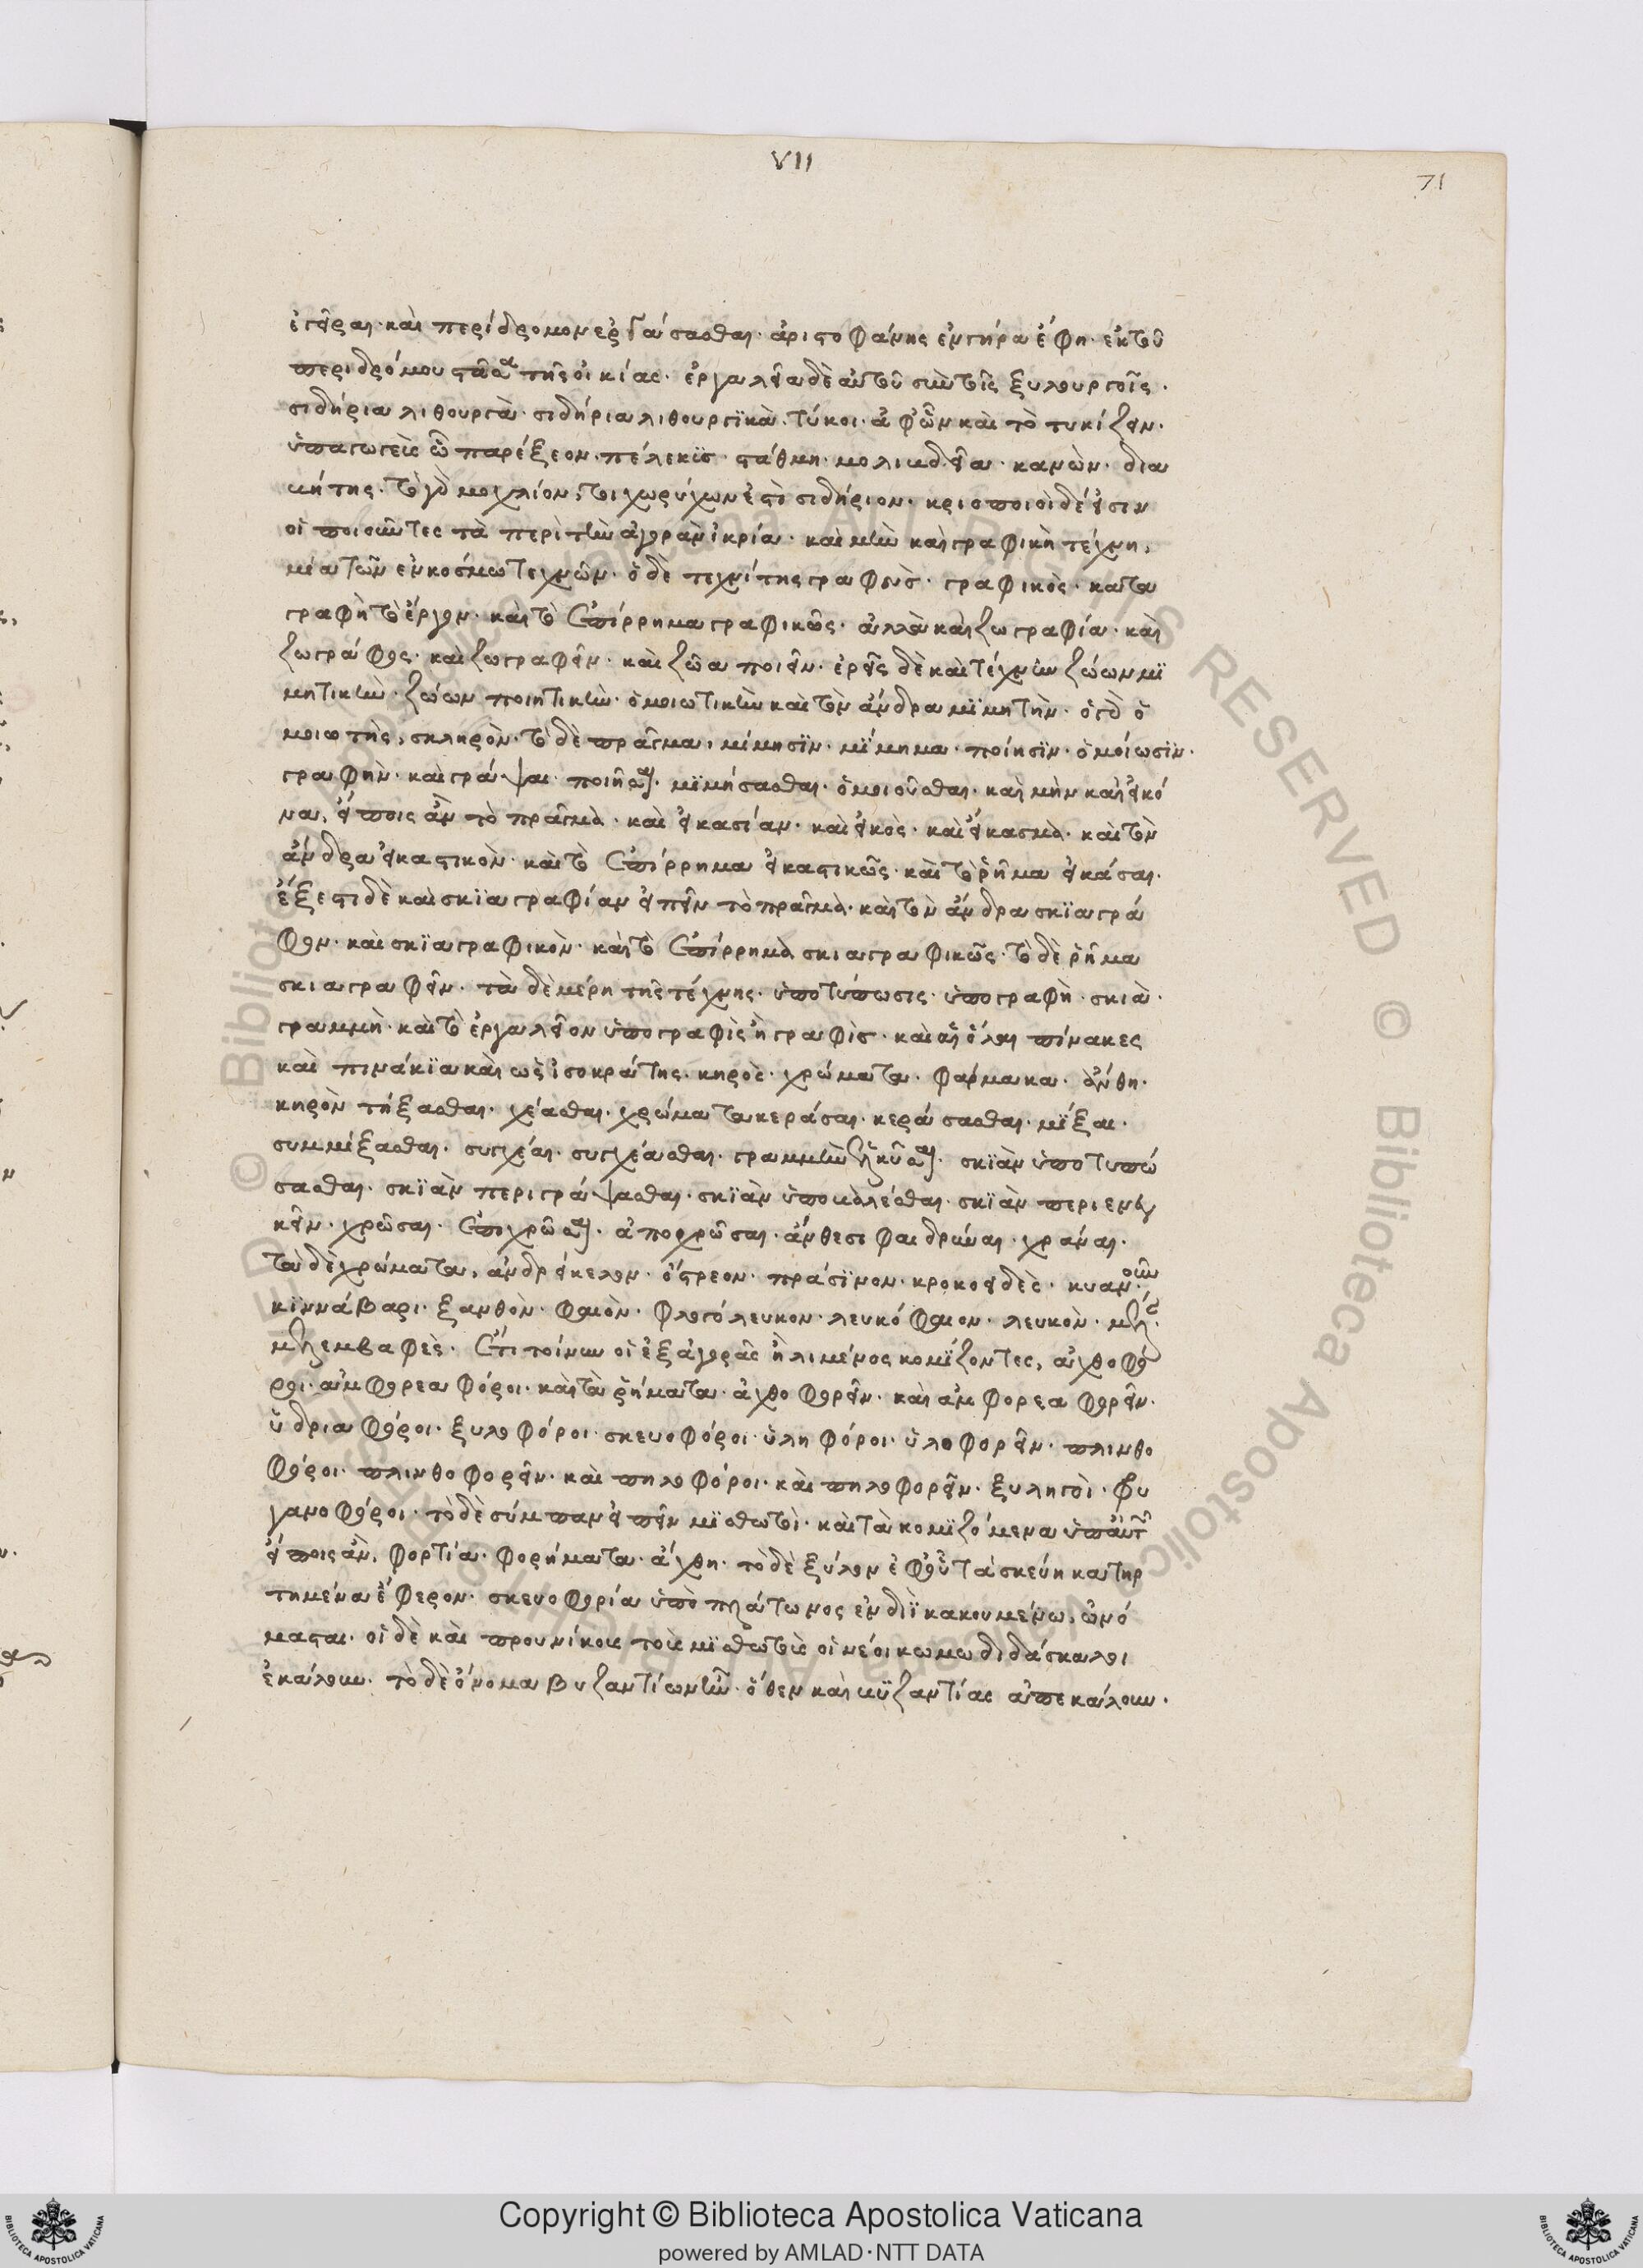 VII
71
ἐγεῖραι· καὶ περίδρομον ἐργάσασθαι· ἀριστοφάνης ἐν γήρα ἔφη· ἐκ τοῦ
περιδρόμου στᾶσα τῆς οἰκίας· ἐργαλεῖα δὲ αὐτοῦ σὺν τοῖς ξυλουργοῖς·
σιδήρια λιθουργὰ· σιδήρια λιθουργϊκὰ· τύκοι· ἀφ' ὧν καὶ τὸ τυκίζειν·
ὑπαγωγεὺς ᾧ παρέξεον· πέλεκϊς· στάθμη· μολιβδεῖα· κανὼν· δια
βήτης· τὸ γὰρ μοχλίον, τοιχωρύχων ἐστὶ σιδήριον· κριοποιοὶ δέ εἰσιν
οἱ ποιοῦντες τὰ περὶ τὴν ἀγορὰν ἰκρία· καὶ μὴν καὶ γραφικὴ τέχνη,
μία τῶν ἐν κοσμω τεχνῶν· ὁ δὲ τεχνίτης γραφεὺς· γραφικὸς· κατα
γραφὴ τὸ ἔργον· καὶ τὸ ἐπίρρημα γραφικῶς· ἀλλὰ καὶ ζωγραφία· καὶ
ζωγράφος· καὶ ζωγραφεῖν· καὶ ζῶα ποιεῖν· ἐρεῖς δὲ καὶ τέχνην ζώων μϊ
μητικὴν· ζώων ποιητικὴν· ὁμοιωτικὴν καὶ τὸν ἄνδρα μϊμητὴν· ὁ γὰρ ὁ
μοιωτὴς, σκληρὸν· τὸ δὲ πρᾶγμα, μίμησϊν· μΐμημα· ποίησϊν· ὁμοίωσϊν·
γραφὴν· καὶ γράψαι· ποιῆσαι· μϊμήσασθαι· ὁμοιοῦσθαι· καὶ μὴν καὶ εἰκό
να, εἴποις ἂν τὸ πρᾶγμα· καὶ εἰκασίαν· καὶ εἰκὸς· καὶ εἴκασμα· καὶ τὸν
ἄνδρα εἰκαστικὸν· καὶ τὸ ἐπίρρημα εἰκαστικῶς· καὶ τὸ ῥῆμα εἰκάσαι·
ἔξεστι δὲ καὶ σκϊαγραφίαν εἰπεῖν τὸ πρᾶγμα· καὶ τὸν ἄνδρα σκϊαγρά
φον· καὶ σκϊαγραφικὸν· καὶ τὸ ἐπίρρημα σκιαγραφικῶς· τὸ δὲ ῥῆμα
σκιαγραφεῖν· τὰ δὲ μέρη τῆς τέχνης· ὑποτύπωσις· ὑπογραφὴ· σκιὰ·
γραμμὴ· καὶ τὸ ἐργαλεῖον ὑπογραφὶς ἢ γραφὶς· καὶ αἱ ὗλαι πίνακες
καὶ πινάκϊα καὶ ὡς ἰσοκράτης· κηρὸς· χρώματα· φάρμακα· ἄνθη·
κηρὸν τήξασθαι· χέασθαι· χρώματα κεράσαι· κεράσασθαι· μΐξαι·
συμμίξασθαι· συγχέαι· συγχέασθαι· γραμμὴν ἑλκῦσαι· σκϊὰν ὑποτυπώ
σασθαι· σκϊὰν περιγράψασθαι· σκϊὰν ὑποβαλέσθαι· σκϊὰν περιενεγ
κεῖν· χρῶσαι· ἐπιχρῶσαι· ἀποχρῶσαι· ἄνθεσι φαιδρύναι· χρᾶναι·
τὰ δὲ χρώματα, ἀνδρείκελον· ὄστρεον· πράσϊνον· κροκοειδὲς· κυανοῦν·
κϊννάβαρι· ξανθὸν· φαιὸν· φλογόλευκον· λευκόφαιον· λευκὸν· μέλαν·
μελεμβαφὲς· ἔτι τοίνυν οἱ ἐξ ἀγορᾶς ἢ λιμένος κομΐζοντες, ἀχθοφό
ροι· ἀμφορεαφόροι· καὶ τὰ ῥήματα· ἀχθοφορεῖν· καὶ ἀμφορεαφορεῖν·
ὑδριαφόροι· ξυλοφόροι· σκευοφόροι· ὑληφόροι· ὑλοφορεῖν· πλινθο
φόροι· πλινθοφορεῖν· καὶ πηλοφόροι· καὶ πηλοφορεῖν· ξυληγοὶ· φρυ
γανοφόροι· τὸ δὲ σύμπαν εἰπεῖν μϊσθωτοὶ· καὶ τὰ κομϊζόμενα ὑπ' αὐτῶν
εἴποις ἂν, φορτία· φορήματα· ἄχθη· τὸ δὲ ξύλον ἐφ' οὗ τὰ σκεύη κατηρ
τημένα ἔφερον· σκευοφορία ὑπὸ πλάτωνος ἐν διῒ κακουμένω, ὠνό
μασται· οἱ δὲ καὶ προυνίκους τοὺς μϊσθωτοὺς οἱ νέοι κωμωδιδάσκαλοι
ἐκάλουν· τὸ δὲ ὄνομα βυζαντίων ἦν· ὅθεν καὶ βϋζαντίας ἀπεκάλουν·
Copyright © Biblioteca Apostolica Vaticana
powered by AMLAD·NTT DATA